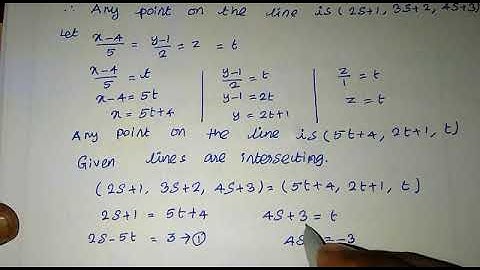 ∴ Any point on the line is (2s+1, 3s+2, 4s+3)
Let x-4/5 = y-1/2 = z = t
x-4/5 = t | y-1/2 = t | z/1 = t
x-4 = 5t | y-1 = 2t | z = t
x = 5t+4 | y = 2t+1
Any point on the line is (5t+4, 2t+1, t)
Given lines are intersecting.
(2s+1, 3s+2, 4s+3) = (5t+4, 2t+1, t)
2s+1 = 5t+4 4s+3 = t
2s-5t = 3 → ① 4s = -3